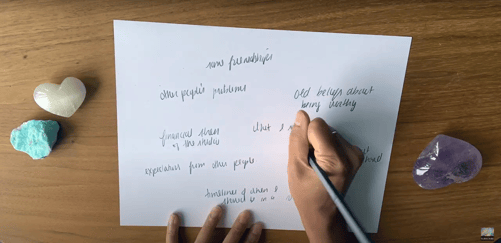 some friendships
other people's problems
Old beliefs about
being worthy
financial stress
of the studio
what I
expectations from other people
timelines of when I
should